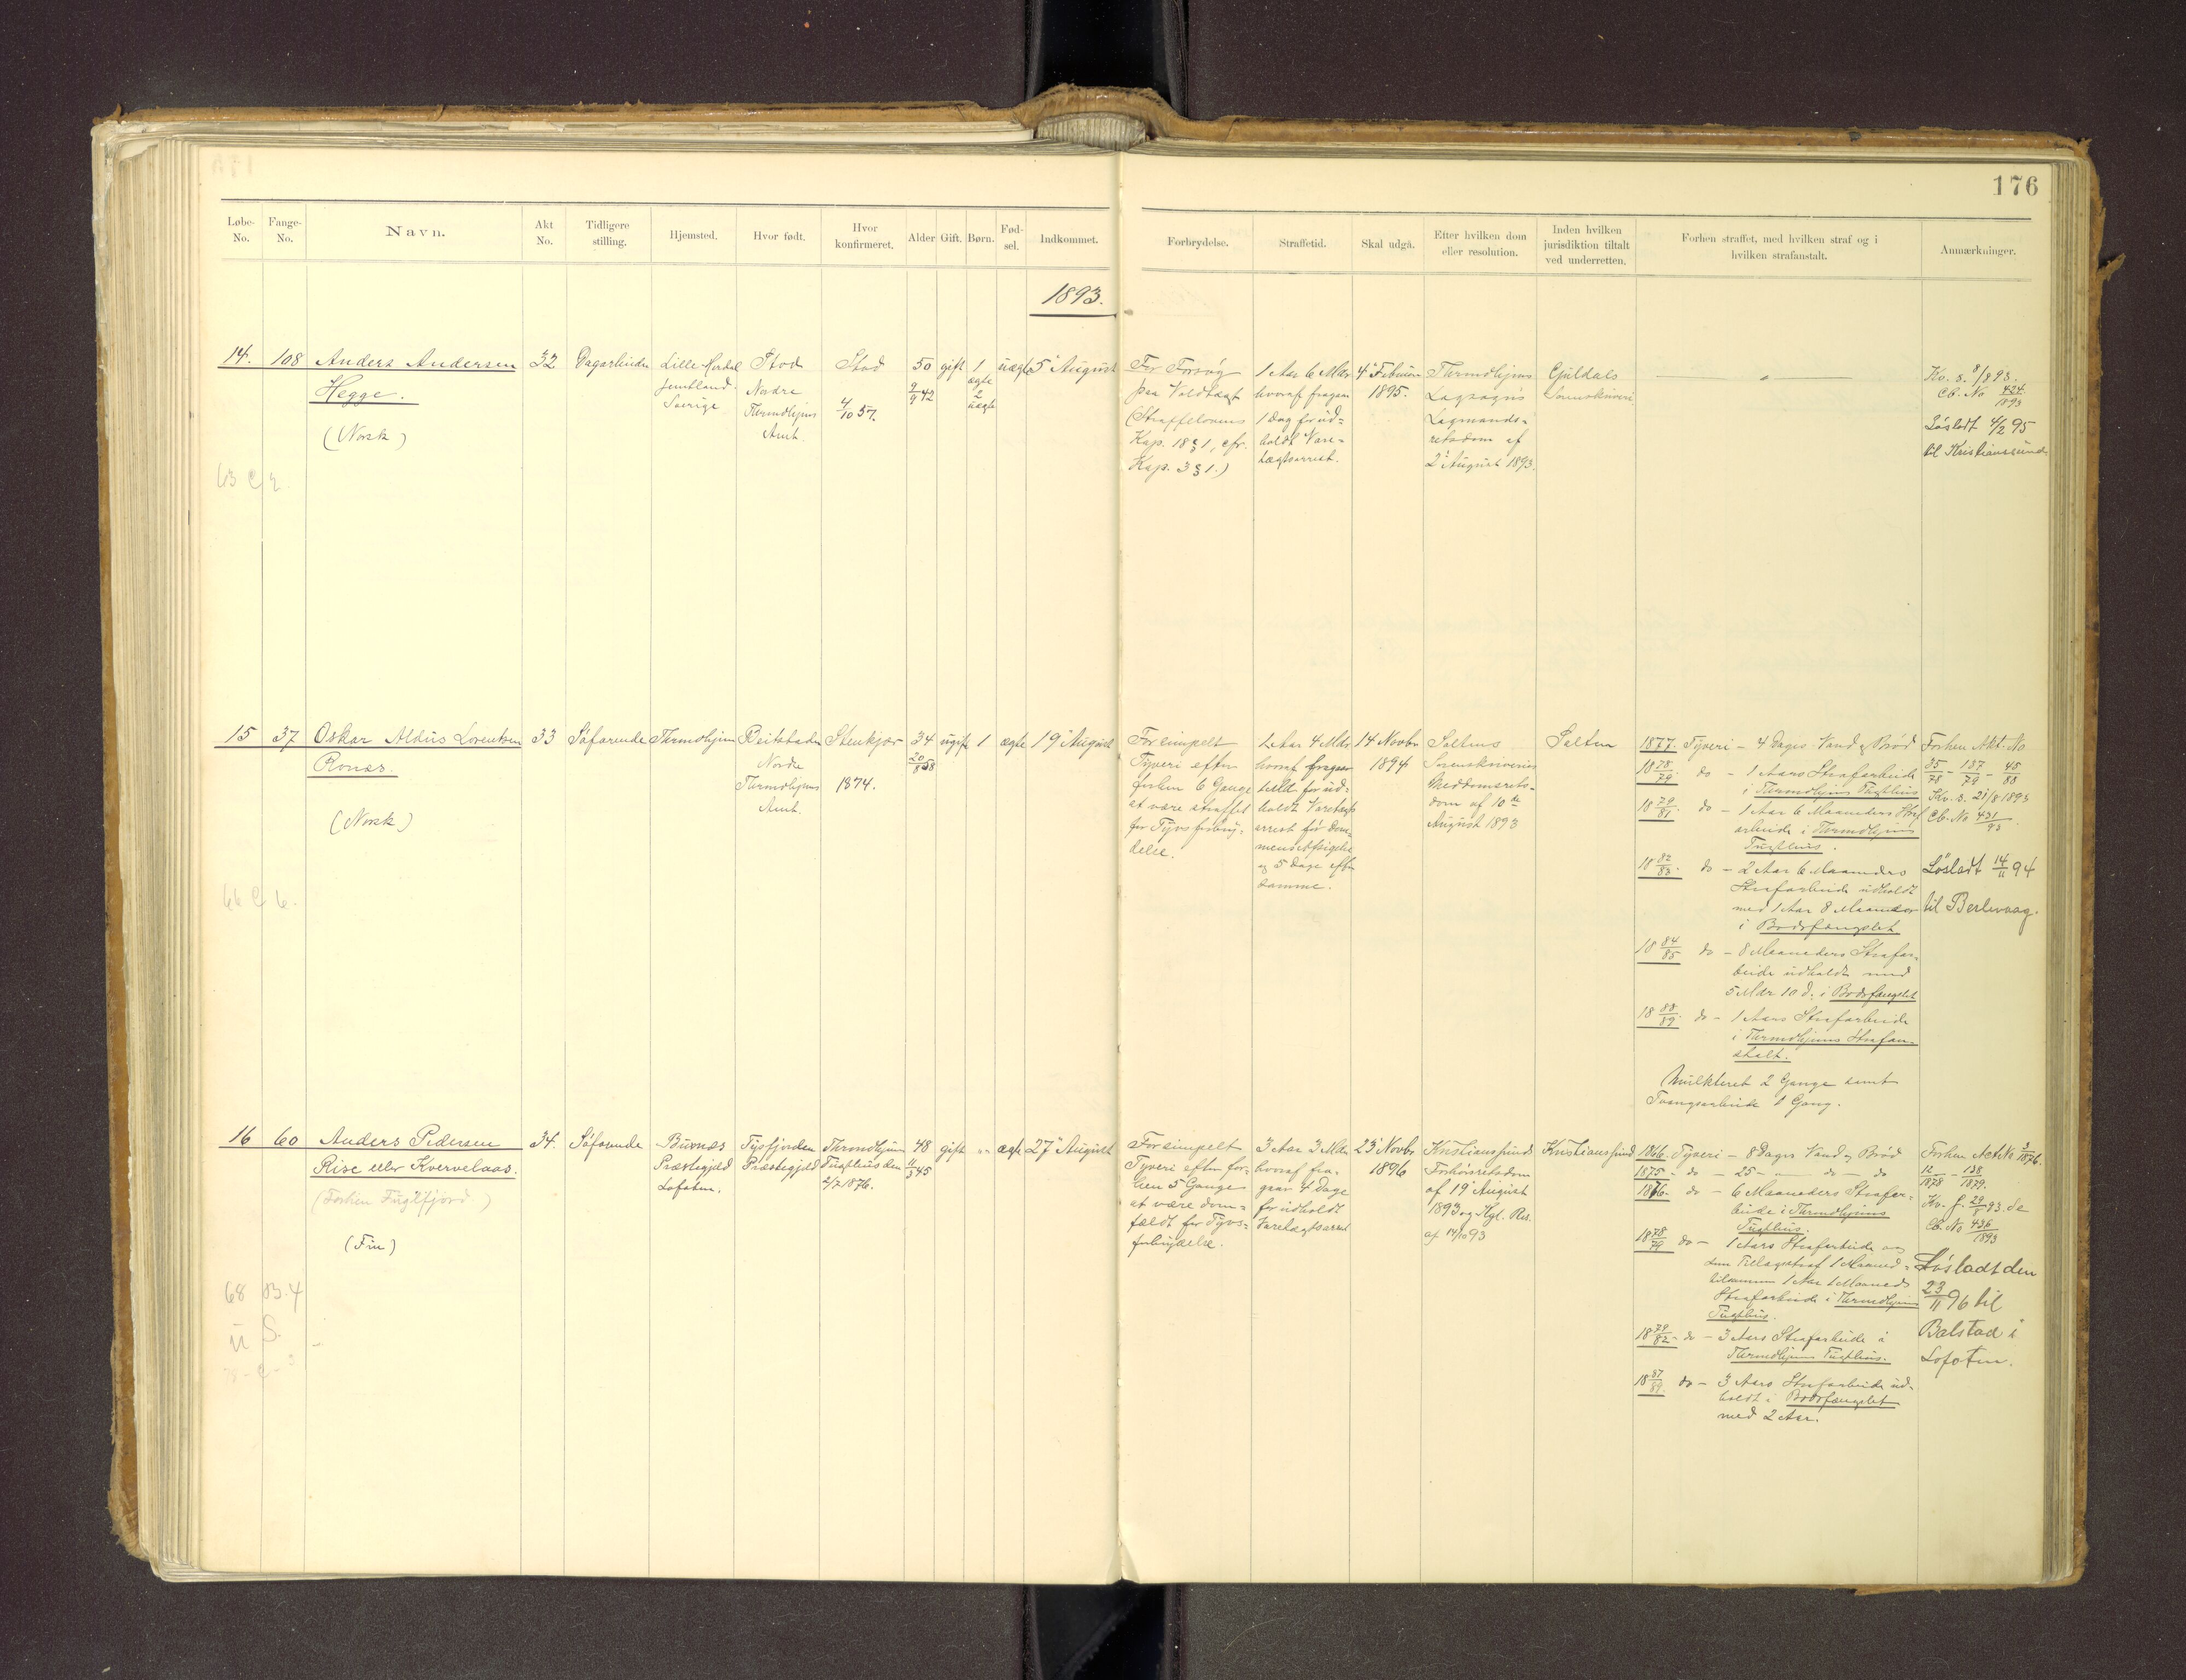 176
Løbe-No.
Fange-No.
Navn.
Akt No.
Tidligere stilling.
Hjemsted.
Hvor født.
Hvor konfirmeret.
Alder
Gift.
Børn.
Fød-sel.
Indkommet.
Forbrydelse.
Straffetid.
Skal udgå.
Efter hvilken dom eller resolution.
Inden hvilken jurisdiktion tiltalt ved underretten.
Forhen straffet, med hvilken straf og i hvilken strafanstalt.
Anmærkninger.
1893.
14.
108
Anders Andersen
Hegge.
(Norsk)
63 C 2.
32
Dagarbeider
Lille Herdal
Jemtland.
Sverige
Stod
Nordre
Throndhjems
Amt.
Stod
4/10 57.
50
9/9 42
gift
1
ægte
2
uægte
uægte
5' August
For Forsøg
paa Voldtægt
(Straffelovens
Kap. 18 § 1, cfr.
Kap. 3 § 1.)
1 Aar 6 Mdr
hvoraf fragaar
1 Dag for ud-
holdt Vare-
tægtsarrest.
4' Februar
1895.
Throndhjems
Lagsogns
Lagmands-
retsdom af
2' August 1893.
Guldals
Sorenskriveri.
— " —
Kv. s. 8/8 93.
Cb. No 424/1893
Løsladt 4/2 95
til Kristianssund
15
37
Oskar Aldus Lorentsen
Ronæs.
(Norsk)
66 C 6.
33
Søfarende
Throndhjem
Beitstaden
Nordre
Throndhjems
Amt.
Stenkjær
1874.
34
20/8 58
ugift
1
ægte
19' August
For simpelt
Tyveri efter
forhen 6 Gange
at være straffet
for Tyvsforbry-
delse.
1 Aar 4 Mdr
hvoraf fragaar
1 Md. for ud-
holdt Varetægts
arrest før Dom-
mens Afsigelse
og 5 Dage efter
samme.
14 Novbr
1894
Saltens
Sorenskriveries
Meddomsrets-
dom af 10de
August 1893
Salten
1877. Tyveri – 4 Dages Vand & Brød
18 78/79. do – 1 Aars Strafarbeide
i Throndhjems Tugthus
18 79/81. do – 1 Aar 6 Maaneders Straf
arbeide i Throndhjems
Tugthus.
18 82/83. do – 2 Aar 6 Maaneders
Strafarbeide udholdt
med 1 Aar 8 Maaneder
i Bodsfængslet
18 84/85 do – 8 Maaneders Strafar-
beide udholdt med
5 Mdr 10 d. i Bodsfængslet
18 88/89. do – 1 Aars Strafarbeide
i Throndhjems Strafan-
stalt.
Mulkteret 2 Gange samt
Tvangsarbeide 1 Gang.
Forhen Akt. No
35/78 – 137/79 – 45/88
Kv. s. 21/8 1893
Cb. No 431/93.
Løsladt 14/11 94
til Berlevaag.
16
60
Anders Pedersen
Rise eller Kvervelaas.
(Forhen Fuglfjord.)
(Fin)
68 B. 4
u S.
34.
Søfarende
Buxnæs
Præstegjeld
Lofoten.
Tysfjorden
Præstegjeld
Throndhjems
Tugthus den
2/7 1876.
48
11/3 45
gift
"
ægte
27' August
For simpelt
Tyveri efter for-
hen 5 Gange
at være dom-
fældt for Tyvs-
forbrydelse.
3 Aar 3 Mdr
hvoraf fra-
gaar 4 Dage
for udholdt
Varetægtsarrest
23' Novbr
1896
Kristianssunds
Forhørsretsdom
af 19' August
1893 og Kgl. Res.
af 14/10 93
Kristianssund
1866. Tyveri – 8 Dages Vand & Brød
1875 – do – 25 – do – do
1876. do – 6 Maaneders Strafar-
beide i Throndhjems
Tugthus.
18 78/79 do – 1 Aars Strafarbeide og
som Tillægsstraf 1 Maaned –
tilsammen 1 Aar 1 Maaneds
Strafarbeide i Throndhjems
Tugthus.
18 79/82 – do – 3 Aars Strafarbeide i
Throndhjems Tugthus.
18 87/89. do – 3 Aars Strafarbeide ud-
holdt i Bodsfængslet
med 2 Aar.
Forhen Akt No 3/1876.
12/1878 – 138/1879.
Kv. f. 29/8 93. se
Cb. No 436/1893
Løsladt den
23/11 96 til
Balstad i
Lofoten.